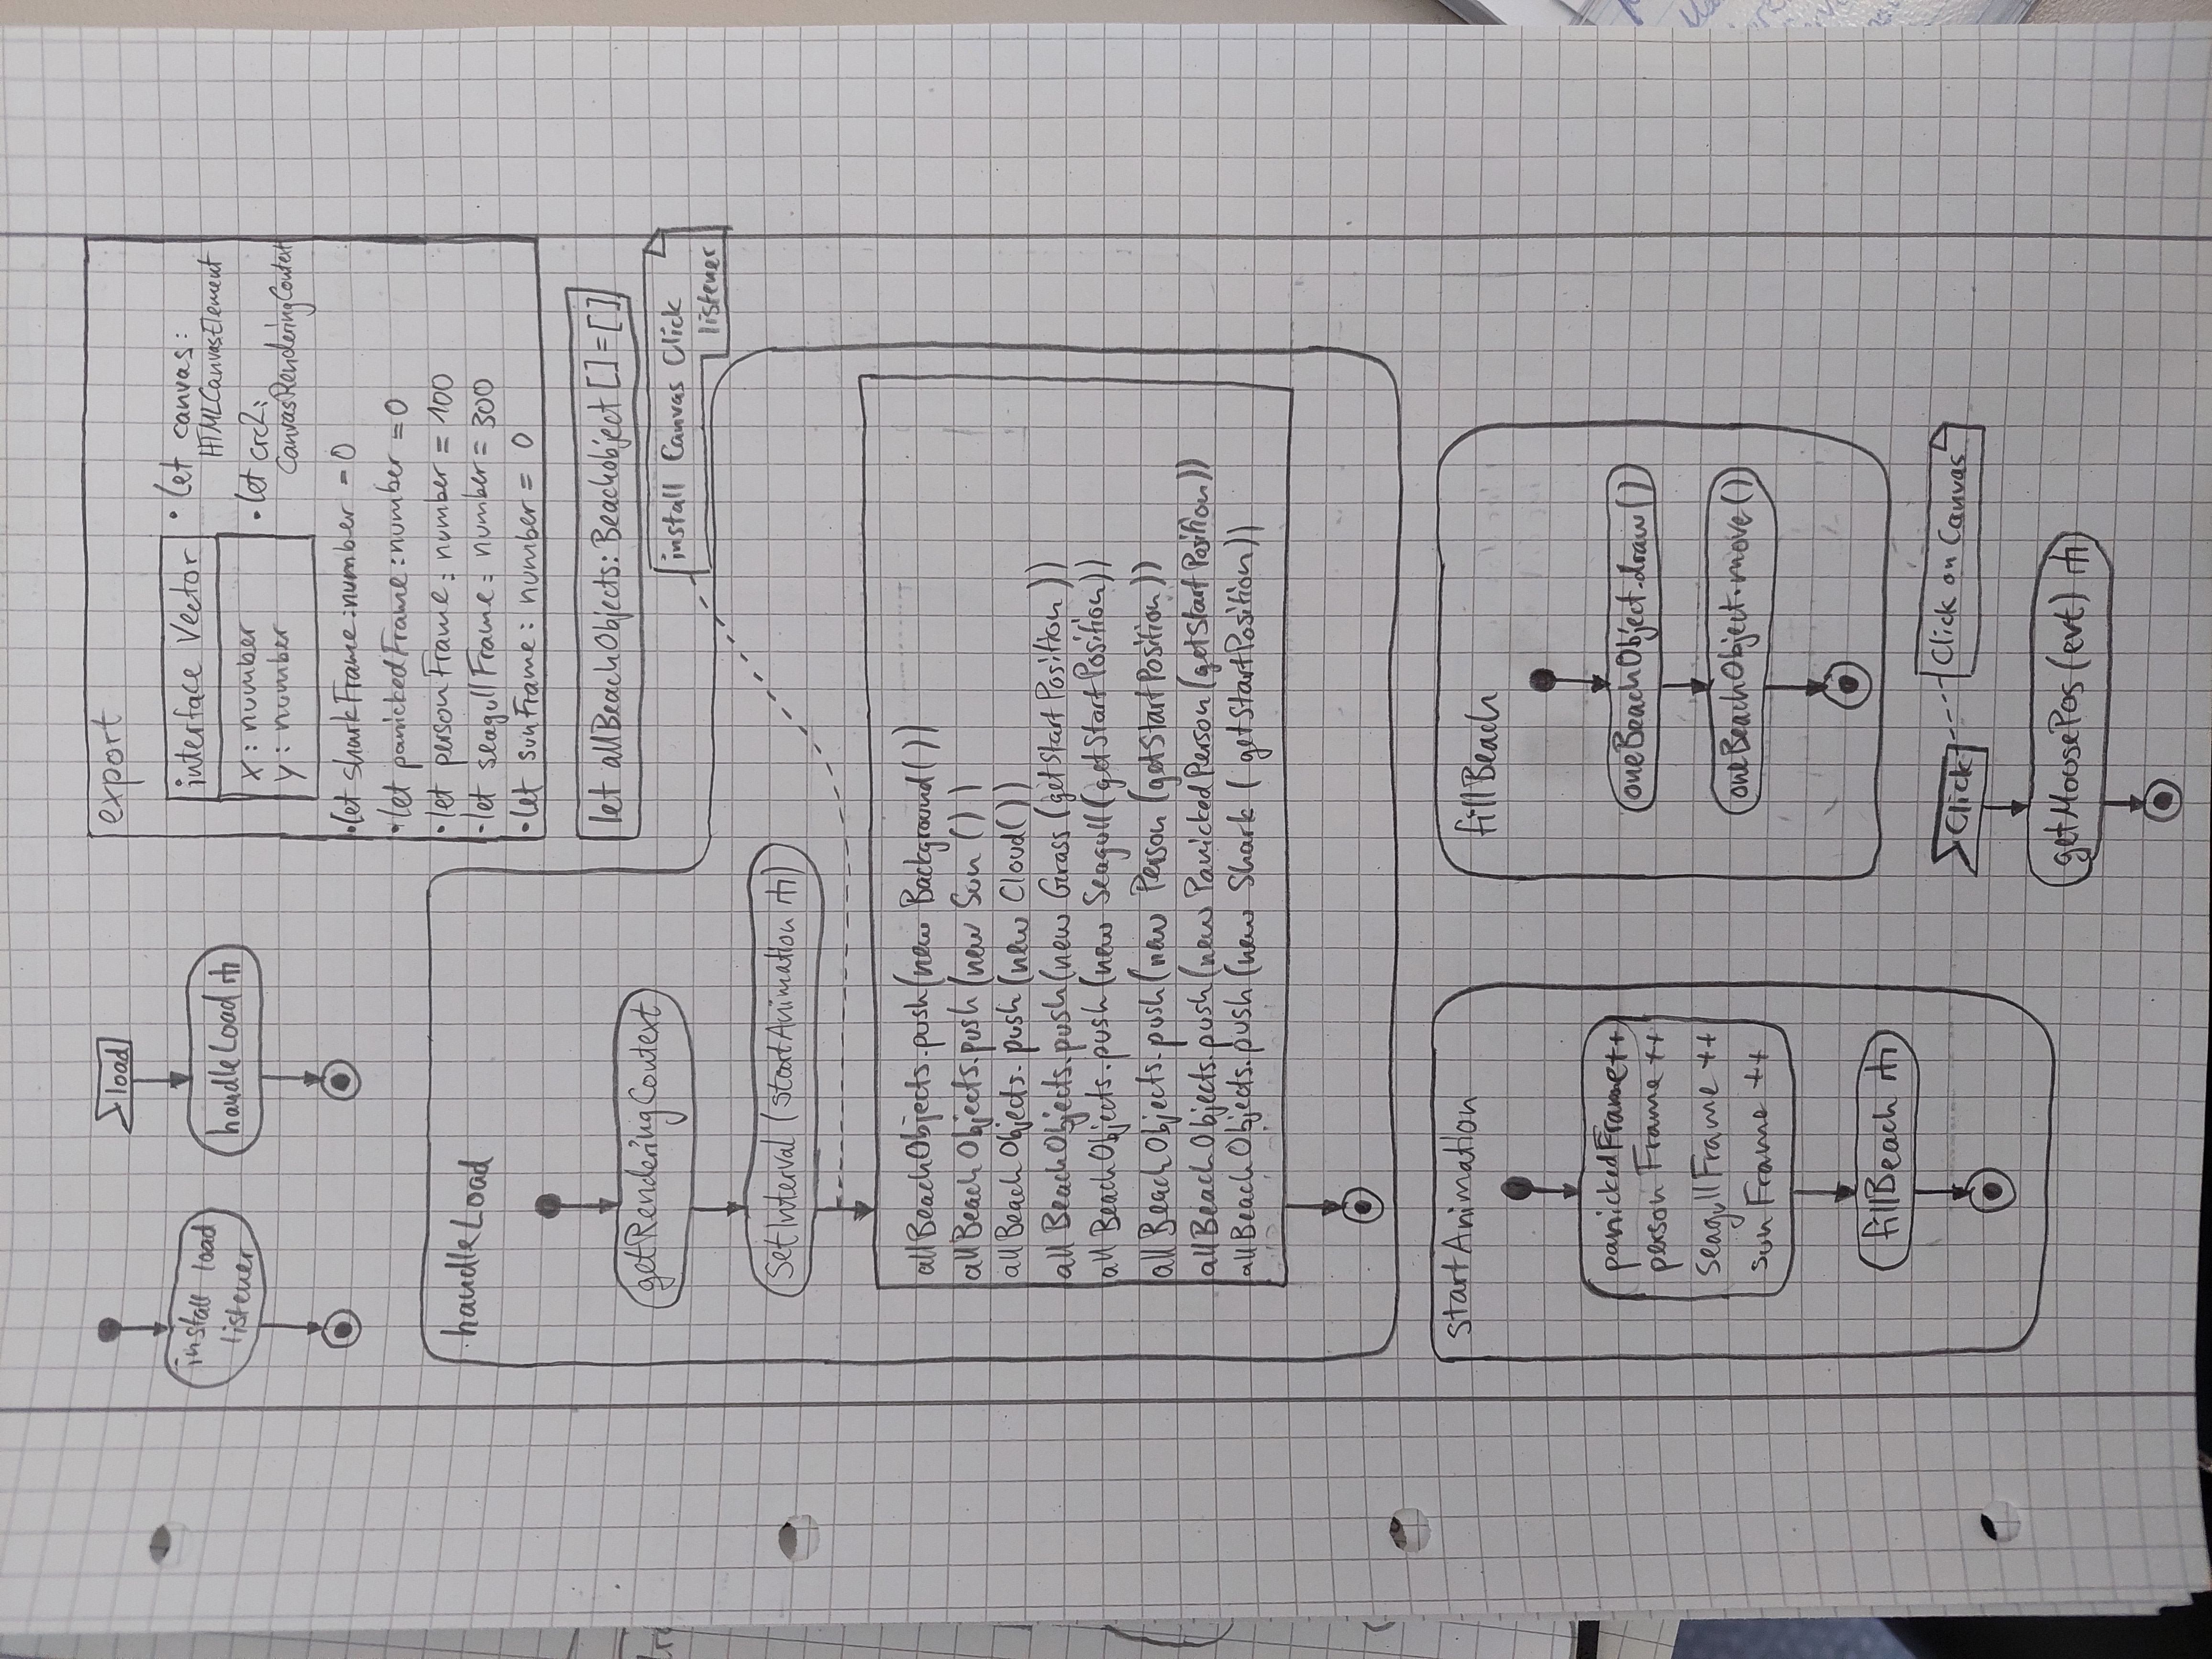 install load
listener
load
handleLoad
export
interface Vector
x : number
y : number
• let canvas:
HTMLCanvasElement
• let crc2:
CanvasRenderingContext
• let sharkFrame : number = 0
• let panickedFrame : number = 0
• let personFrame : number = 100
• let seagullFrame : number = 300
• let sunFrame : number = 0
let allBeachObjects: Beachobject [] = []
install Canvas Click
listener
handleLoad
getRenderingContext
SetInterval (startAnimation)
allBeachObjects.push(new Background())
allBeachObjects.push(new Sun ())
allBeachObjects.push(new Cloud())
allBeachObjects.push(new Grass (getStartPosition))
allBeachObjects.push(new Seagull (getStartPosition))
allBeachObjects.push(new Person (getStartPosition))
allBeachObjects.push(new PanickedPerson (getStartPosition))
allBeachObjects.push(new Shark ( getStartPosition))
startAnimation
panickedFrame++
personFrame ++
seagullFrame ++
sunFrame ++
fillBeach
fillBeach
oneBeachObject.draw()
oneBeachObject.move()
Click
Click on Canvas
getMousePos (evt)